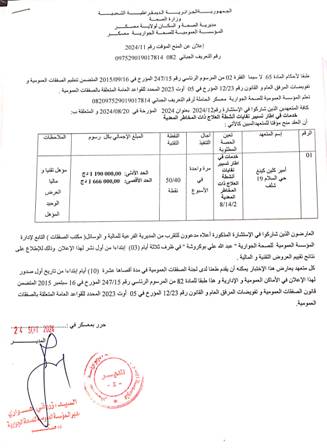 الجمهورية الجزائرية الديمقراطية الشعبية
وزارة الصحة
مديرية الصحة و السكان لولاية معسكر
المؤسسة العمومية للصحة الجوارية معسكر
إعلان عن المنح الموقت رقم 2024/11
رقم التعريف الجبائي 082 097529019017814
طبقا لأحكام المادة 65 لا سيما الفقرة 02 من المرسوم الرئاسي 247/15 المؤرخ في 2015/09/16 المتضمن تنظيم الصفقات العمومية و
تفويضات المرفق العام و القانون رقم 12/23 المؤرخ في 05 أوت 2023 المحدد للقواعد العامة المتعلقة بالصفقات العمومية
تعلم المؤسسة العمومية للصحة الجوارية معسكر الحاملة لرقم التعريف الجبائي 082097529019017814
كافة المتعهدين الذين شاركوا في الإستشارة رقم 2024/12 بعنوان 2024 المؤرخة في 2024/08/20 و المتعلقة ب:
خدمات في اطار تسيير نفايات أنشطة العلاج ذات المخاطر المعدية
أن العقد منح مؤقتا للمتعهد السيد كالآتي:
الرقم
إسم المتعهد
تعين الحصة
النقطة التقنية
المبلغ الإجمالي بكل رسوم
الملاحظات
01
أمير كلين كيدع
حي السلام 19
شلف
خدمات في
إطار تسيير
نفايات
أنشطة
العلاج ذات
المخاطر
المعدية
8/14/2
مرة واحدة
في
الأسبوع
50/40
نقطة
الحد الأدنى: 1 190 000,00 دج
الحد الأقصى: 1 666 000,00 دج
مؤهل تقنيا و
ماليا
العرض
الوحيد
المؤهل
العارضون الذين شاركوا في الإستشارة المذكورة أعلاه مدعوون للتقرب من المديرية الفرعية للمالية و الوسائل( مكتب الصفقات ) التابع لإدارة
المؤسسة العمومية للصحة الجوارية " عبد الله علي بوكروشة " في ظرف ثلاثة أيام (03) إبتداءا من أول نشر لهذا الإعلان وذلك للإطلاع على
نتائج تقييم العروض التقنية و المالية .
كل متعهد يعارض هذا الإختيار يمكنه أن يقدم طعنا لدى لجنة الصفقات العمومية في مدة أقصاها عشرة (10) أيام إبتداءا من تاريخ أول صدور
لهذا الإعلان في الأماكن العمومية و الإدارية و هذا طبقا للمادة 82 من المرسوم الرئاسي رقم 247/15 المؤرخ في 16 سبتمبر 2015 المتضمن
قانون الصفقات العمومية و تفويضات المرفق العام و القانون رقم 12/23 المؤرخ في 05 أوت 2023 المحدد للقواعد العامة المتعلقة بالصفقات
العمومية.
حرر بمعسكر في
24 SEPT 2024
المدير